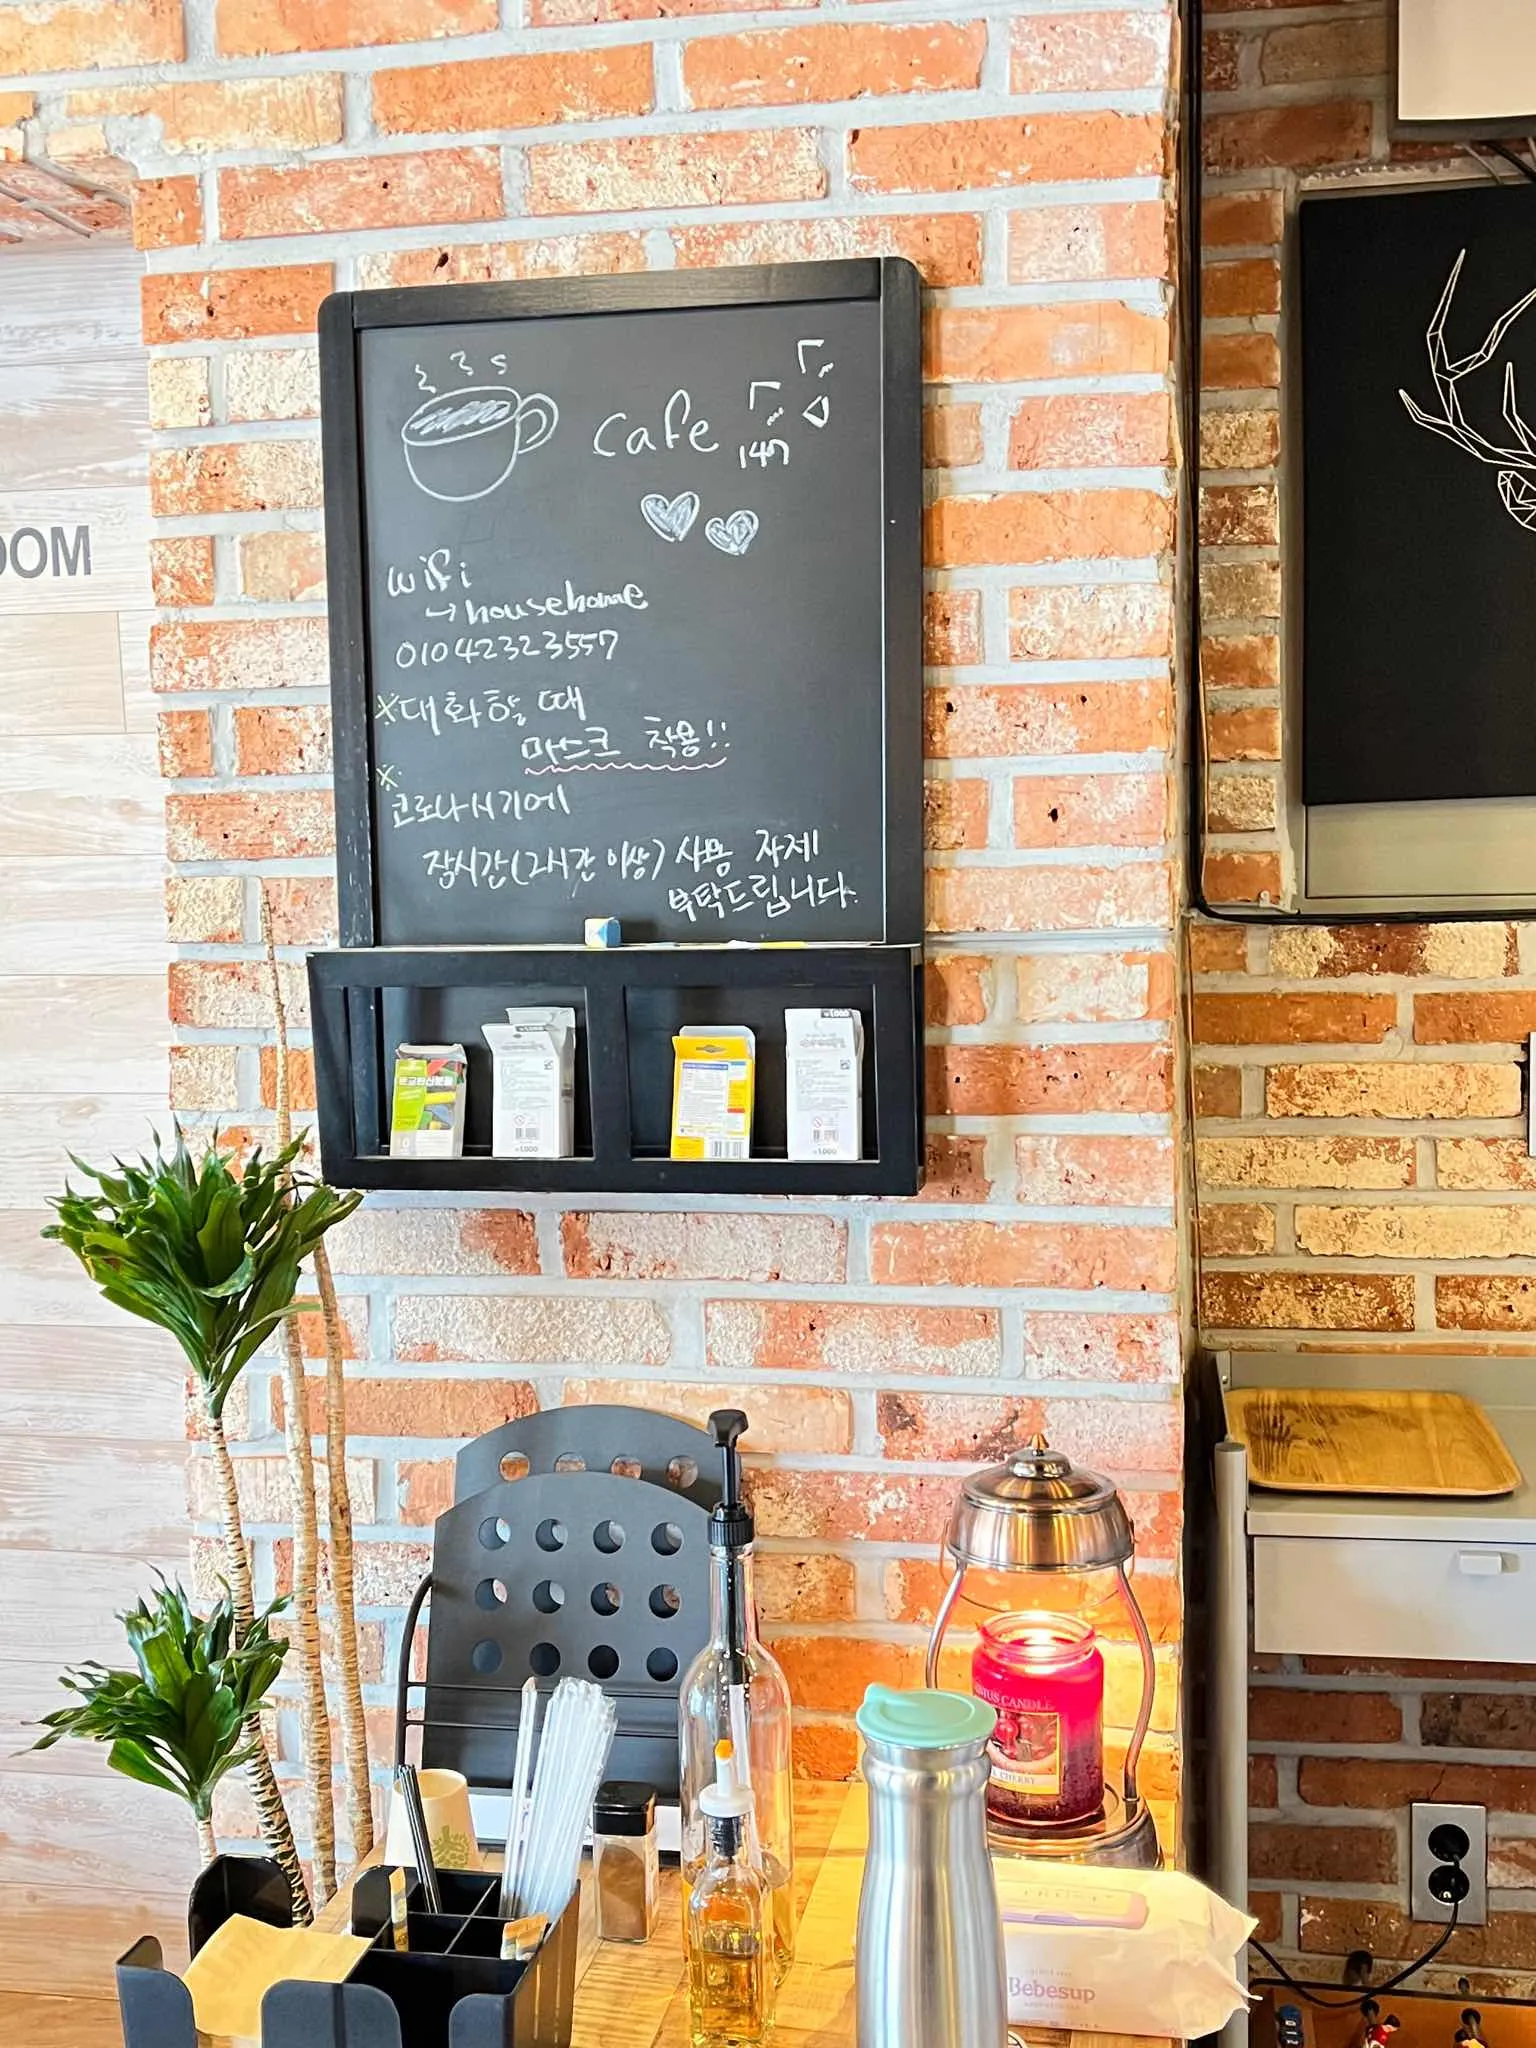 cafe
147
wifi
→ househome
01042323557
※대화할 때
마스크 착용!!
※
코로나시기에
장시간(2시간 이상) 사용 자제
부탁드립니다.
OOM
₩1,000
₩1,000
₩1,000
₩1,000
CANDLE
CHERRY
Bebesup